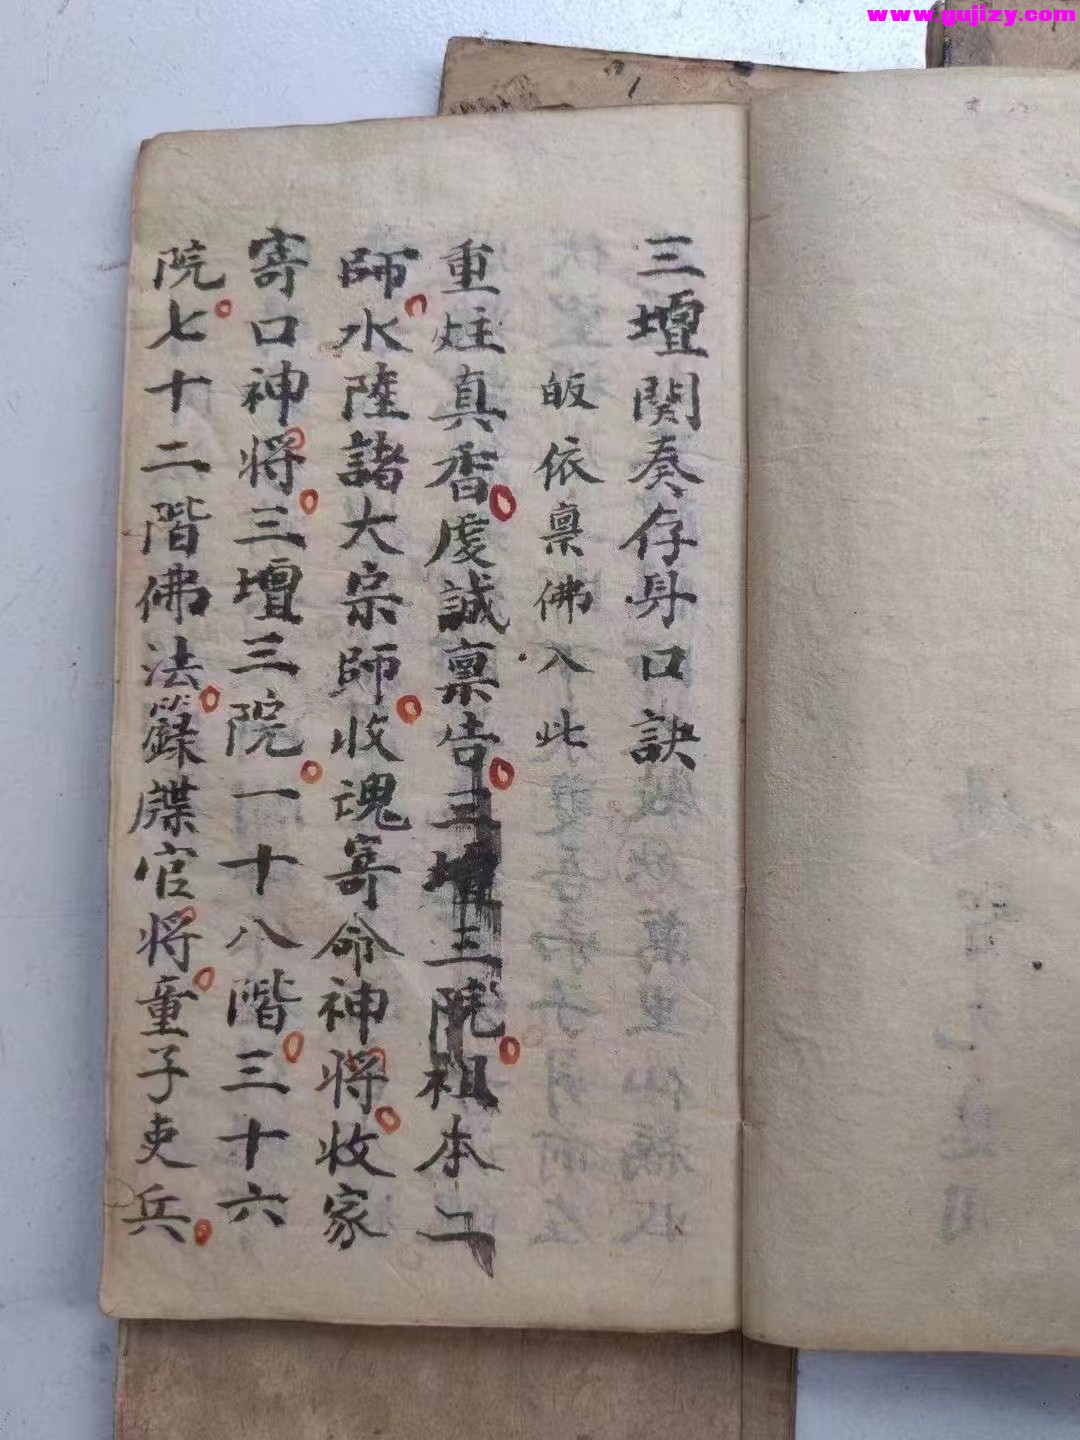 www.gujizy.com
三壇関奏存身口訣
皈依稟佛入此
重炷真香虔誠稟告三壇三院祖本二
師水陸諸大宗師收魂寄命神將收家
寄口神將三壇三院一十八階三十六
院七十二階佛法籙牒官將童子吏兵